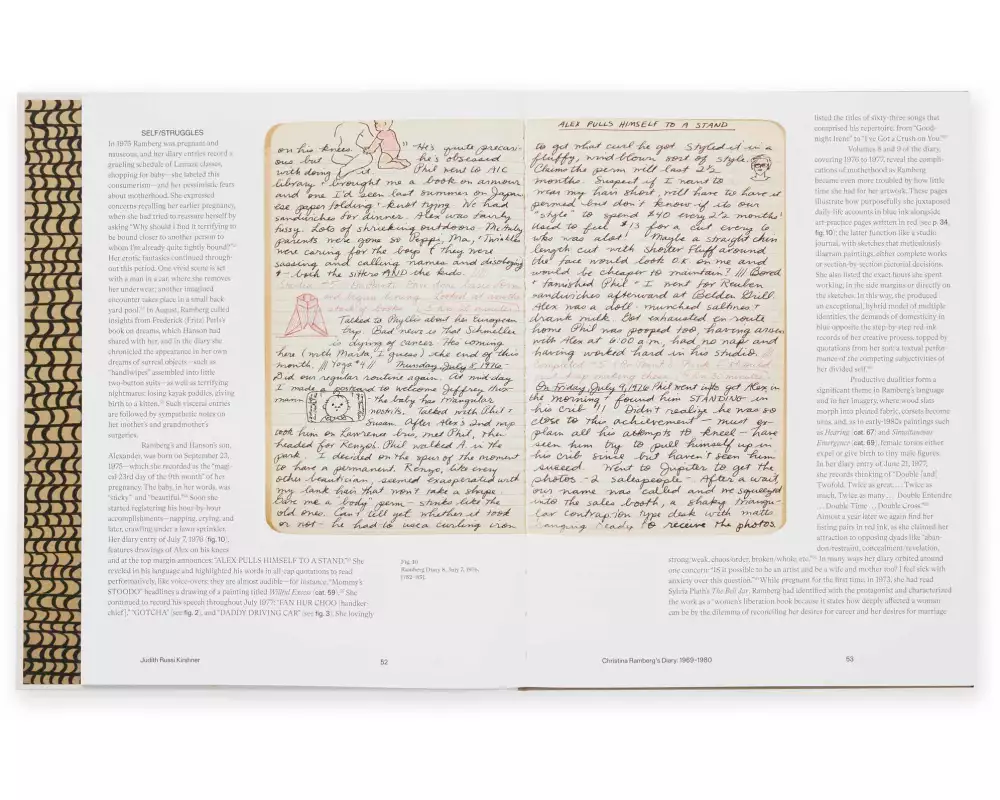 SELF/STRUGGLES
In 1975 Ramberg was pregnant and
nauseous, and her diary entries record a
grueling schedule of Lamaze classes,
shopping for baby—she labeled this
consumerism—and her pessimistic fears
about motherhood. She expressed
concerns recalling her earlier pregnancy,
when she had tried to reassure herself by
asking "Why should I find it terrifying to
be bound closer to another person to
whom I'm already quite tightly bound?"
Her erotic fantasies continued through-
out this period. One vivid scene is set
with a man in a car, where she removes
her underwear; another imagined
encounter takes place in a small back
yard pool. In August, Ramberg culled
insights from Frederick (Fritz) Perls's
book on dreams, which Hanson had
shared with her, and in the diary she
chronicled the appearance in her own
dreams of surreal objects—such as
"handwipes" assembled into little
two-button suits—as well as terrifying
nightmares: losing kayak paddles, giving
birth to a kitten. Such visceral entries
are followed by sympathetic notes on
her mother's and grandmother's
surgeries.
Ramberg's and Hanson's son,
Alexander, was born on September 23,
1975—which she recorded as the "mag-
ical 23rd day of the 9th month" of her
pregnancy. The baby, in her words, was
"sticky" and "beautiful." Soon she
started registering his hour-by-hour
accomplishments—napping, crying, and,
later, crawling under a lawn sprinkler.
Her diary entry of July 7, 1976 (fig. 10),
features drawings of Alex on his knees
and at the top margin announces: "ALEX PULLS HIMSELF TO A STAND." She
reveled in his language and highlighted his words in all-cap quotations to read
performatively, like voice-overs; they are almost audible—for instance, "Mommy's
STOODO" headlines a drawing of a painting titled Willful Excess (cat. 59). She
continued to record his speech throughout July 1977: "FAN HUR CHOO [handker-
chief]," "GOTCHA" (see fig. 2), and "DADDY DRIVING CAR" (see fig. 3). She lovingly
on his knees.
He's quite precari-
ous but he's obsessed
with doing it. Phil went to AIC
library & brought me a book on armour
and one I'd seen last summer on Japan-
ese paper folding & knot tying. We had
sandwiches for dinner. Alex was fairly
fussy. Lots of shrieking outdoors. McAuley
parents were gone so Poppi, Ma, & Twinkles
were caring for the boys & they were
sassing and calling names and disobeying
& - both the sitters AND the kids.
Talked to Phyllis about his European
trip. Bad news is that Schmeller
is dying of cancer. He's coming
here (with Marta, I guess) the end of this
month. /// Yoga #4 // Thursday July 8 1976 -
Did our regular routine again. At mid day
I made a postcard to welcome Jeffrey Hus-
mann
The baby has triangular
nostrils. Talked with Phil &
Susan. After Alex's 2nd nap
took him on Lawrence bus, met Phil, then
headed for Kenzo's. Phil walked A. in the
park. I decided on the spur of the moment
to have a permanent. Kenzo, like every
other beautician, seemed exasperated with
my lank hair that won't take a shape.
Gave me a "body" perm - stinks like the
old ones. Can't tell yet whether it took
or not - he had to use a curling iron
ALEX PULLS HIMSELF TO A STAND
to get what curl he got. Styled it in a
fluffy, wind blown sort of style.
Claims the perm will last 2½
months. Suspect if I want to
wear my hair short will have to have it
permed but don't know if its our
"style" to spend $40 every 2½ months
Used to feel $13 for a cut every 6
wks was alot! Maybe a straight chin
length cut with shorter fluff around
the face would look O.K. on me and
would be cheaper to maintain? /// Bored
& famished Phil & I went for Reuben
sandwiches afterward at Belden Grill.
Alex was a doll - munched saltines &
drank milk. Got exhausted en-route
home. Phil was pooped too, having arisen
with Alex at 6:00 a.m., had no nap and
having worked hard in his studio.
On Friday July 9, 1976 Phil went into get Alex in
the morning & found him STANDING in
his crib !!! Didn't realize he was so
close to this achievement - must ex-
plain all his attempts to kneel - have
seen him try to pull himself up in
his crib since but haven't seen him
succeed. Went to Jupiter to get the
photos - 2 salespeople - After a wait,
our name was called and we squeezed
into the sales booth, a shaky triangu-
lar contraption type desk with matts
hanging ready to receive the photos.
Fig. 10
Ramberg Diary 8, July 7, 1976,
listed the titles of sixty-three songs that
comprised his repertoire, from "Good-
night Irene" to "I've Got a Crush on You."
Volumes 8 and 9 of the diary,
covering 1976 to 1977, reveal the compli-
cations of motherhood as Ramberg
became even more troubled by how little
time she had for her artwork. These pages
illustrate how purposefully she juxtaposed
daily-life accounts in blue ink alongside
art-practice pages written in red (see p. 34,
fig. 10); the latter function like a studio
journal, with sketches that meticulously
diagram paintings, either complete works
or section-by-section pictorial decisions.
She also listed the exact hours she spent
working, in the side margins or directly on
the sketches. In this way, she produced
an exceptional, hybrid model of multiple
identities, the demands of domesticity in
blue opposite the step-by-step red-ink
records of her creative process, topped by
quotations from her son's textual perfor-
mance of the competing subjectivities of
her divided self.
Productive dualities form a
significant theme in Ramberg's language
and in her imagery, where wood slats
morph into pleated fabric, corsets become
urns, and, as in early-1980s paintings such
as Hearing (cat. 67) and Simultaneous
Emergence (cat. 69), female torsos either
expel or give birth to tiny male figures.
In her diary entry of June 21, 1977,
she records thinking of "Double [and]
Twofold. Twice as great. . . . Twice as
much, Twice as many. . . Double Entendre
. . . Double Time . . . Double Cross."
Almost a year later we again find her
listing pairs in red ink, as she claimed her
attraction to opposing dyads like "aban-
don/restraint, concealment/revelation,
strong/weak, chaos/order, broken/whole, etc." In many ways her diary orbited around
one concern: "IS it possible to be an artist and be a wife and mother and mo? I feel sick with
anxiety over this question." While pregnant for the first time, in 1973, she had read
Sylvia Plath's The Bell Jar. Ramberg had identified with the protagonist and characterized
the work as a "women's liberation book because it states how deeply affected a woman
can be by the dilemma of reconciling her desires for career and her desires for marriage
Judith Russi Kirshner
52
Christina Ramberg's Diary: 1969–1980
53